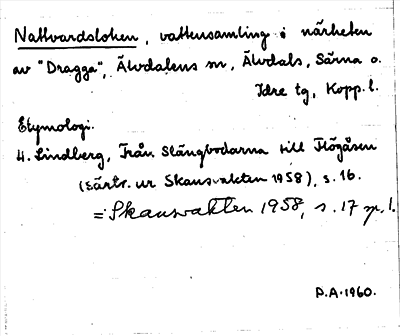 Nattvardslohen, vattensamling i närheten
av "Dragga", Älvdalens sn, Älvdals, Särna o.
Idre tg, Kopp. l.
Etymologi.
H. Lindberg, Från Slängbodarna till Flögåsen
(särtr. ur Skansvakten 1958), s. 16.
= Skansvakten 1958, s. 17 sp. 1.
P.A. 1960.